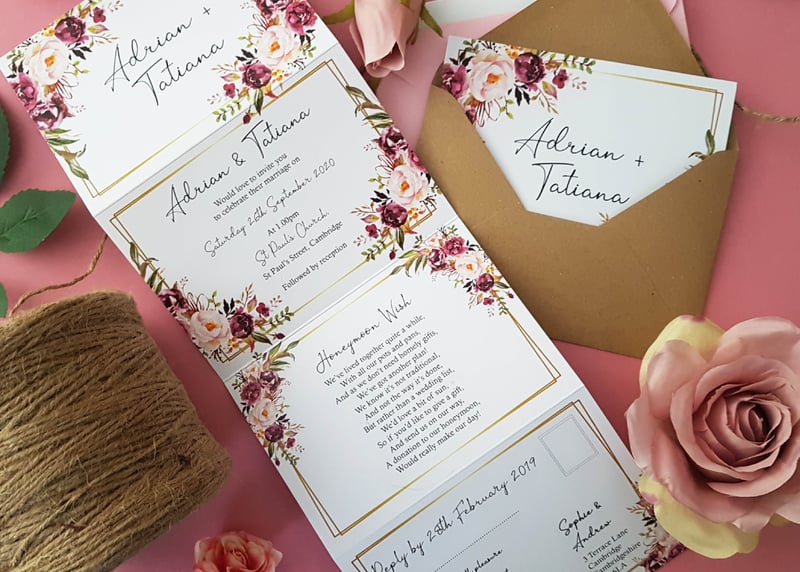 Adrian +
Tatiana
Adrian & Tatiana
Would love to invite you
to celebrate their marriage on
Saturday 26th September 2020
At 1.00pm
St Paul's Church,
St Paul's Street, Cambridge
Followed by reception
Honeymoon Wish
We've lived together quite a while,
With all our pots and pans,
And as we don't need homely gifts,
We've got another plan!
We know it's not traditional,
And not the way it's done,
But rather than a wedding list,
We'd love a bit of sun,
So if you'd like to give a gift,
And send us on our way,
A donation to our honeymoon,
Would really make our day!
Reply by 28th February 2019
pleasure
Sophie &
Andrew
3 Terrace Lane
Cambridge
Cambridgeshire
Adrian +
Tatiana